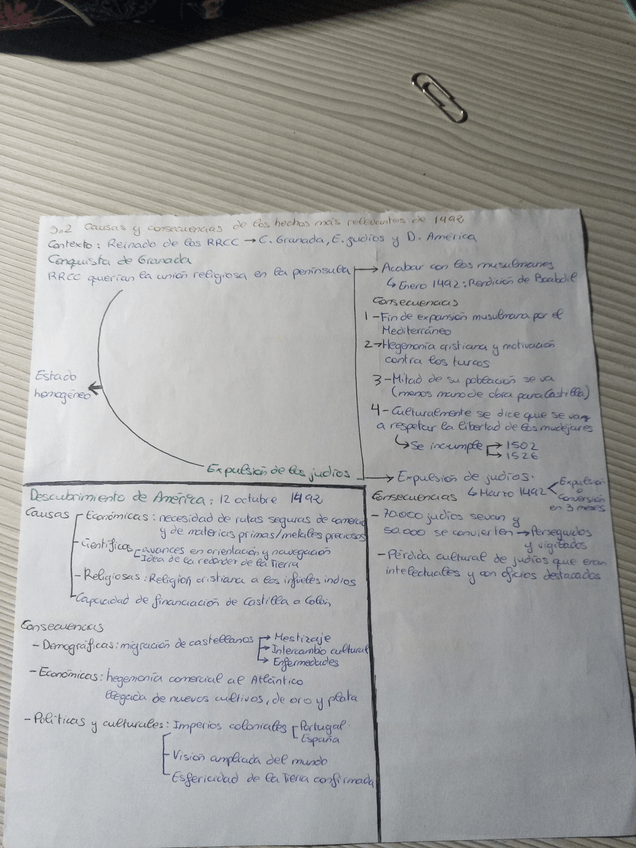 3.2 Causas y consecuencias de los hechos más relevantes de 1492
Contexto: Reinado de los RRCC → C. Granada, E. judíos y D. América
Conquista de Granada
RRCC querían la unión religiosa en la península → Acabar con los musulmanes
↳ Enero 1492: Rendición de Boabdil
Consecuencias
1 - Fin de expansión musulmana por el
Mediterráneo
2 → Hegemonía cristiana y motivación
contra los turcos
3 - Mitad de su población se va
(menos mano de obra para Castilla)
4 - Culturalmente se dice que se van
a respetar la libertad de los mudejares
↳ Se incumple → 1502
→ 1526
Estado
homogéneo
Expulsión de los judíos → Expulsión de judíos.
↳ Marzo 1492 < Expulsión
o
conversión
en 3 meses
Consecuencias
- 70.000 judíos se van y
50.000 se convierten → Perseguidos
y vigilados
- Pérdida cultural de judíos que eran
intelectuales y con oficios destacados
Descubrimiento de América: 12 octubre 1492
Causas
- Económicas: necesidad de rutas seguras de comercio
y de materias primas/metales preciosos
- Científicas avances en orientación y navegación
Idea de la redondez de la Tierra
- Religiosas: Religión cristiana a los infieles indios
Capacidad de financiación de Castilla a Colón
Consecuencias
- Demográficas: migración de castellanos → Mestizaje
→ Intercambio cultural
→ Enfermedades
- Económicas: hegemonía comercial al Atlántico
llegada de nuevos cultivos, de oro y plata
- Políticas y culturales: Imperios coloniales Portugal
España
- Visión ampliada del mundo
- Esfericidad de la Tierra confirmada